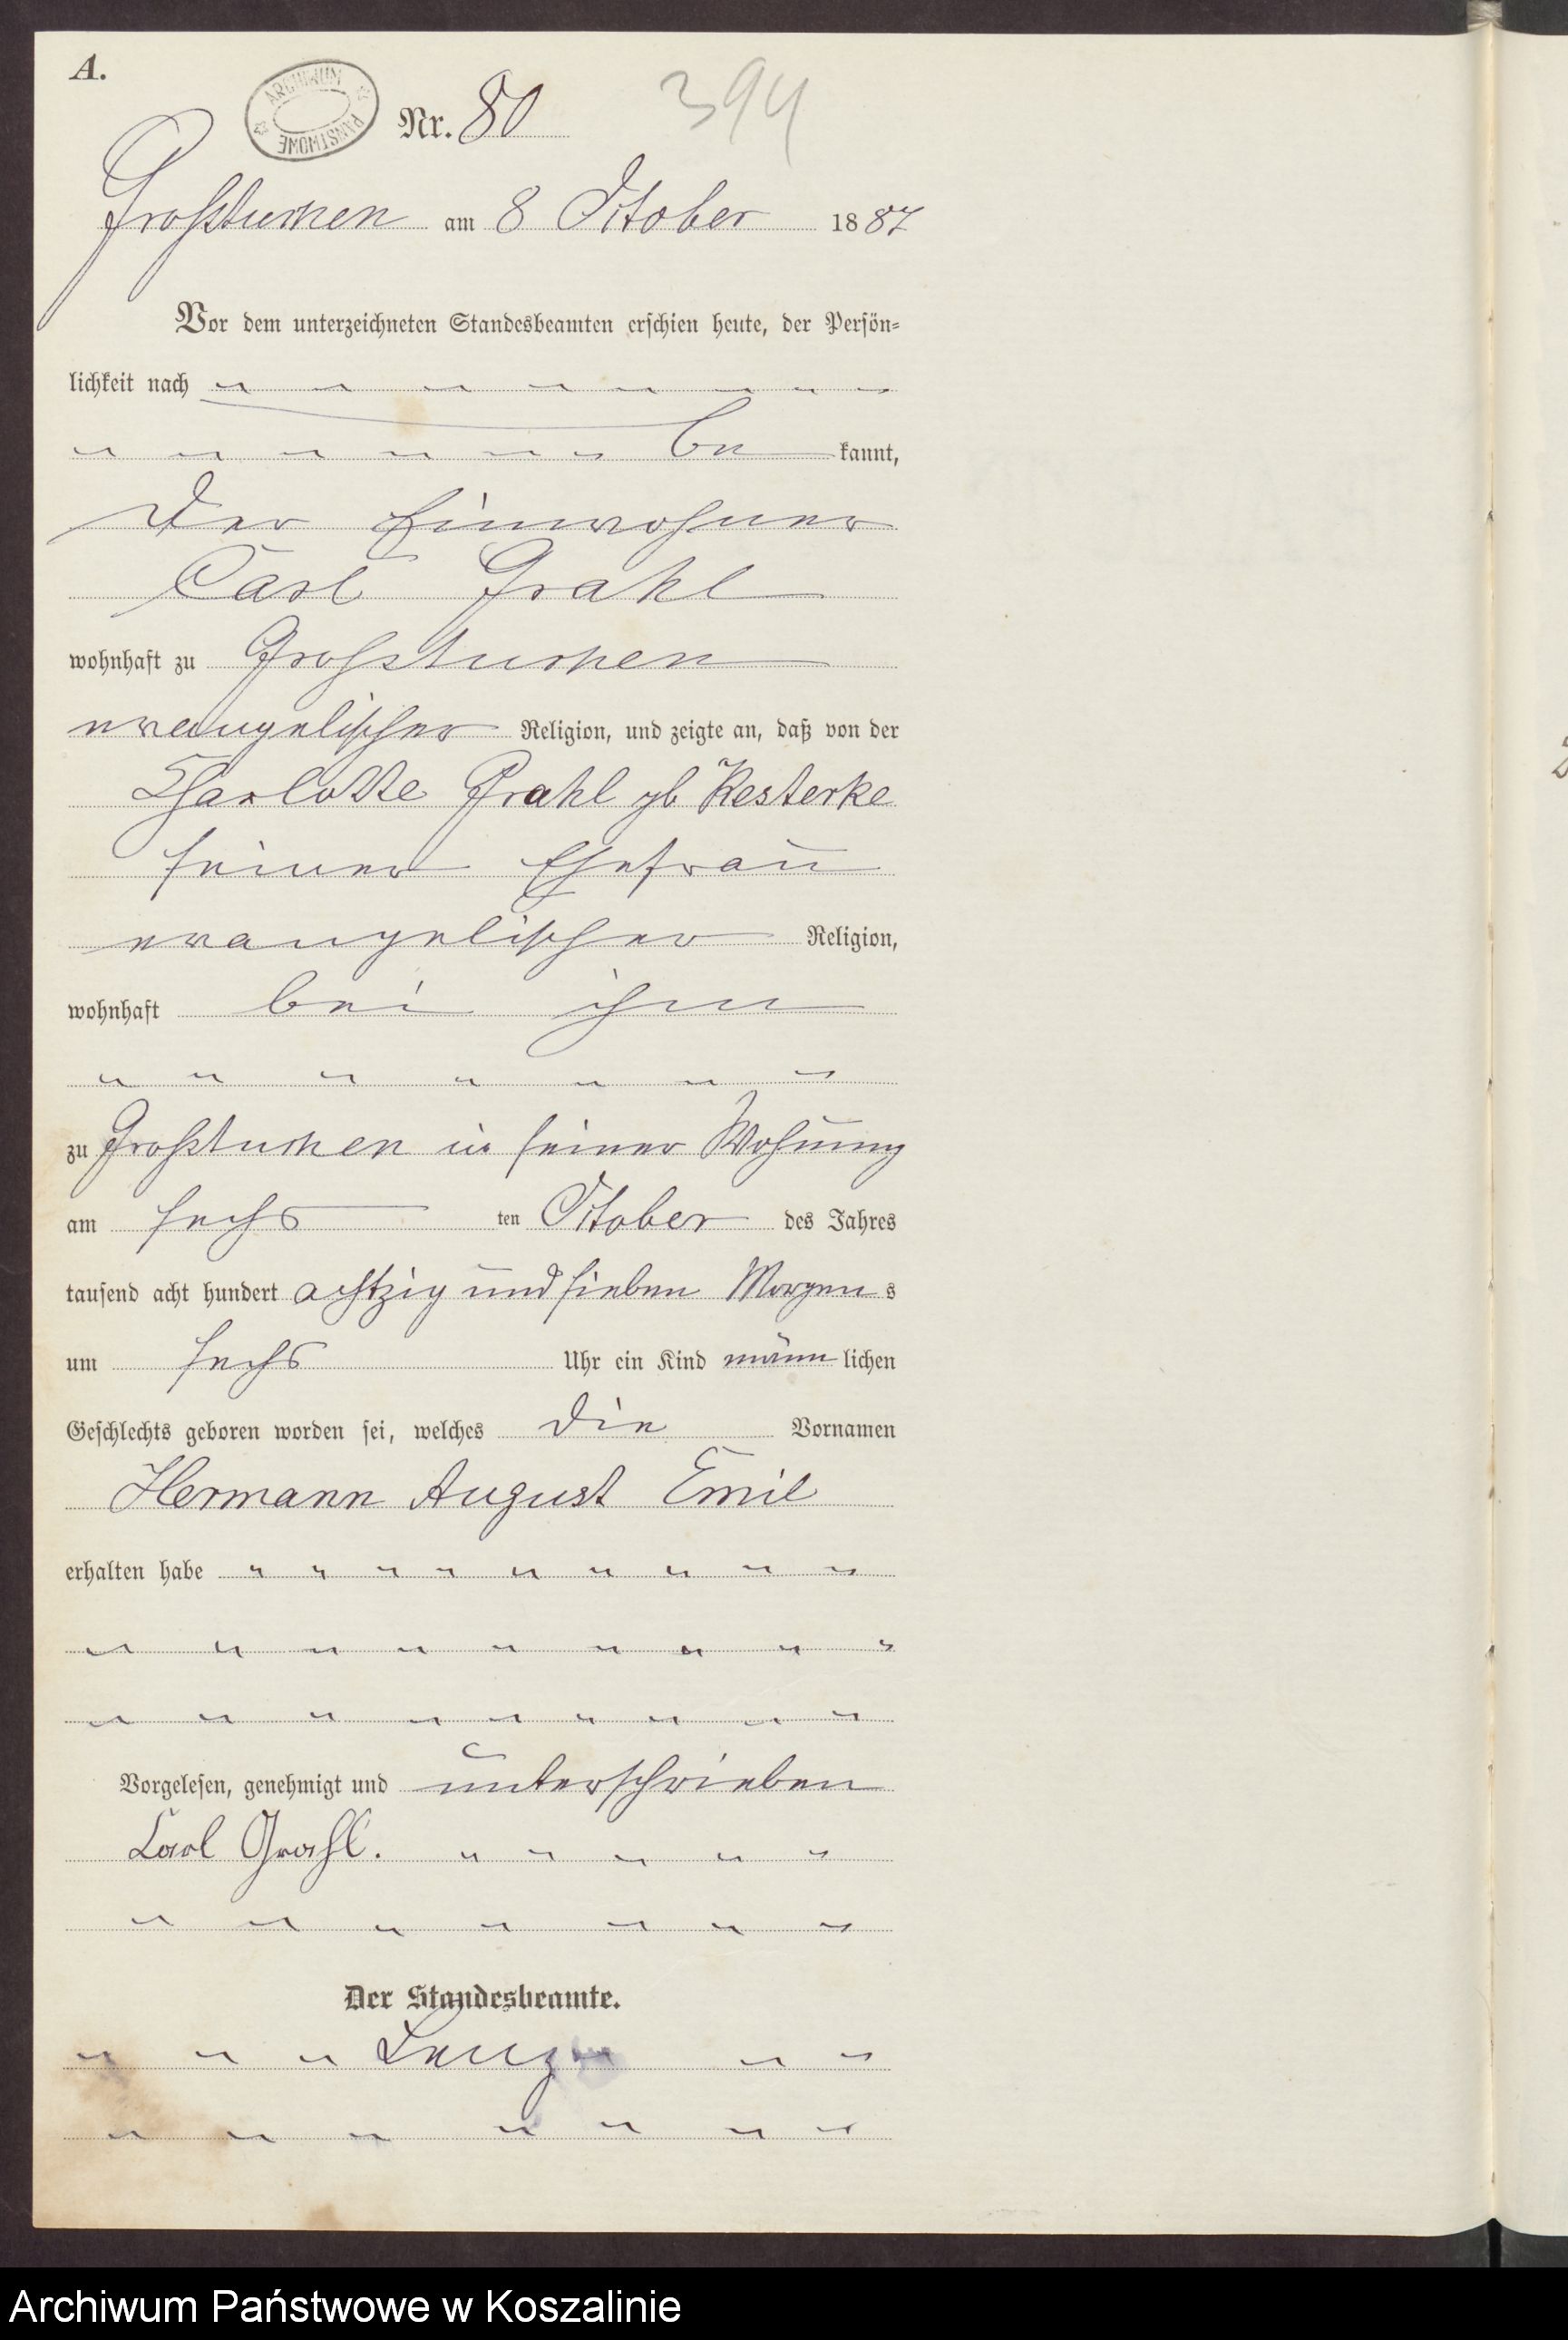 A.
ARCHIWUM PAŃSTWOWE
Nr. 80
394
Großtuchen am 8 October 1887
Vor dem unterzeichneten Standesbeamten erschien heute, der Persön-
lichkeit nach
be kannt,
der Einwohner
Carl Grahl
wohnhaft zu Großtuchen
evangelischer Religion, und zeigte an, daß von der
Charlotte Grahl gb Kesterke
seiner Ehefrau
evangelischer Religion,
wohnhaft bei ihm
zu Großtuchen in seiner Wohnung
am sechs ten October des Jahres
tausend acht hundert achtzig und sieben Morgens
um sechs Uhr ein Kind männlichen
Geschlechts geboren worden sei, welches die Vornamen
Hermann August Emil
erhalten habe
Vorgelesen, genehmigt und unterschrieben
Carl Grahl.
Der Standesbeamte.
Lenz
Archiwum Państwowe w Koszalinie